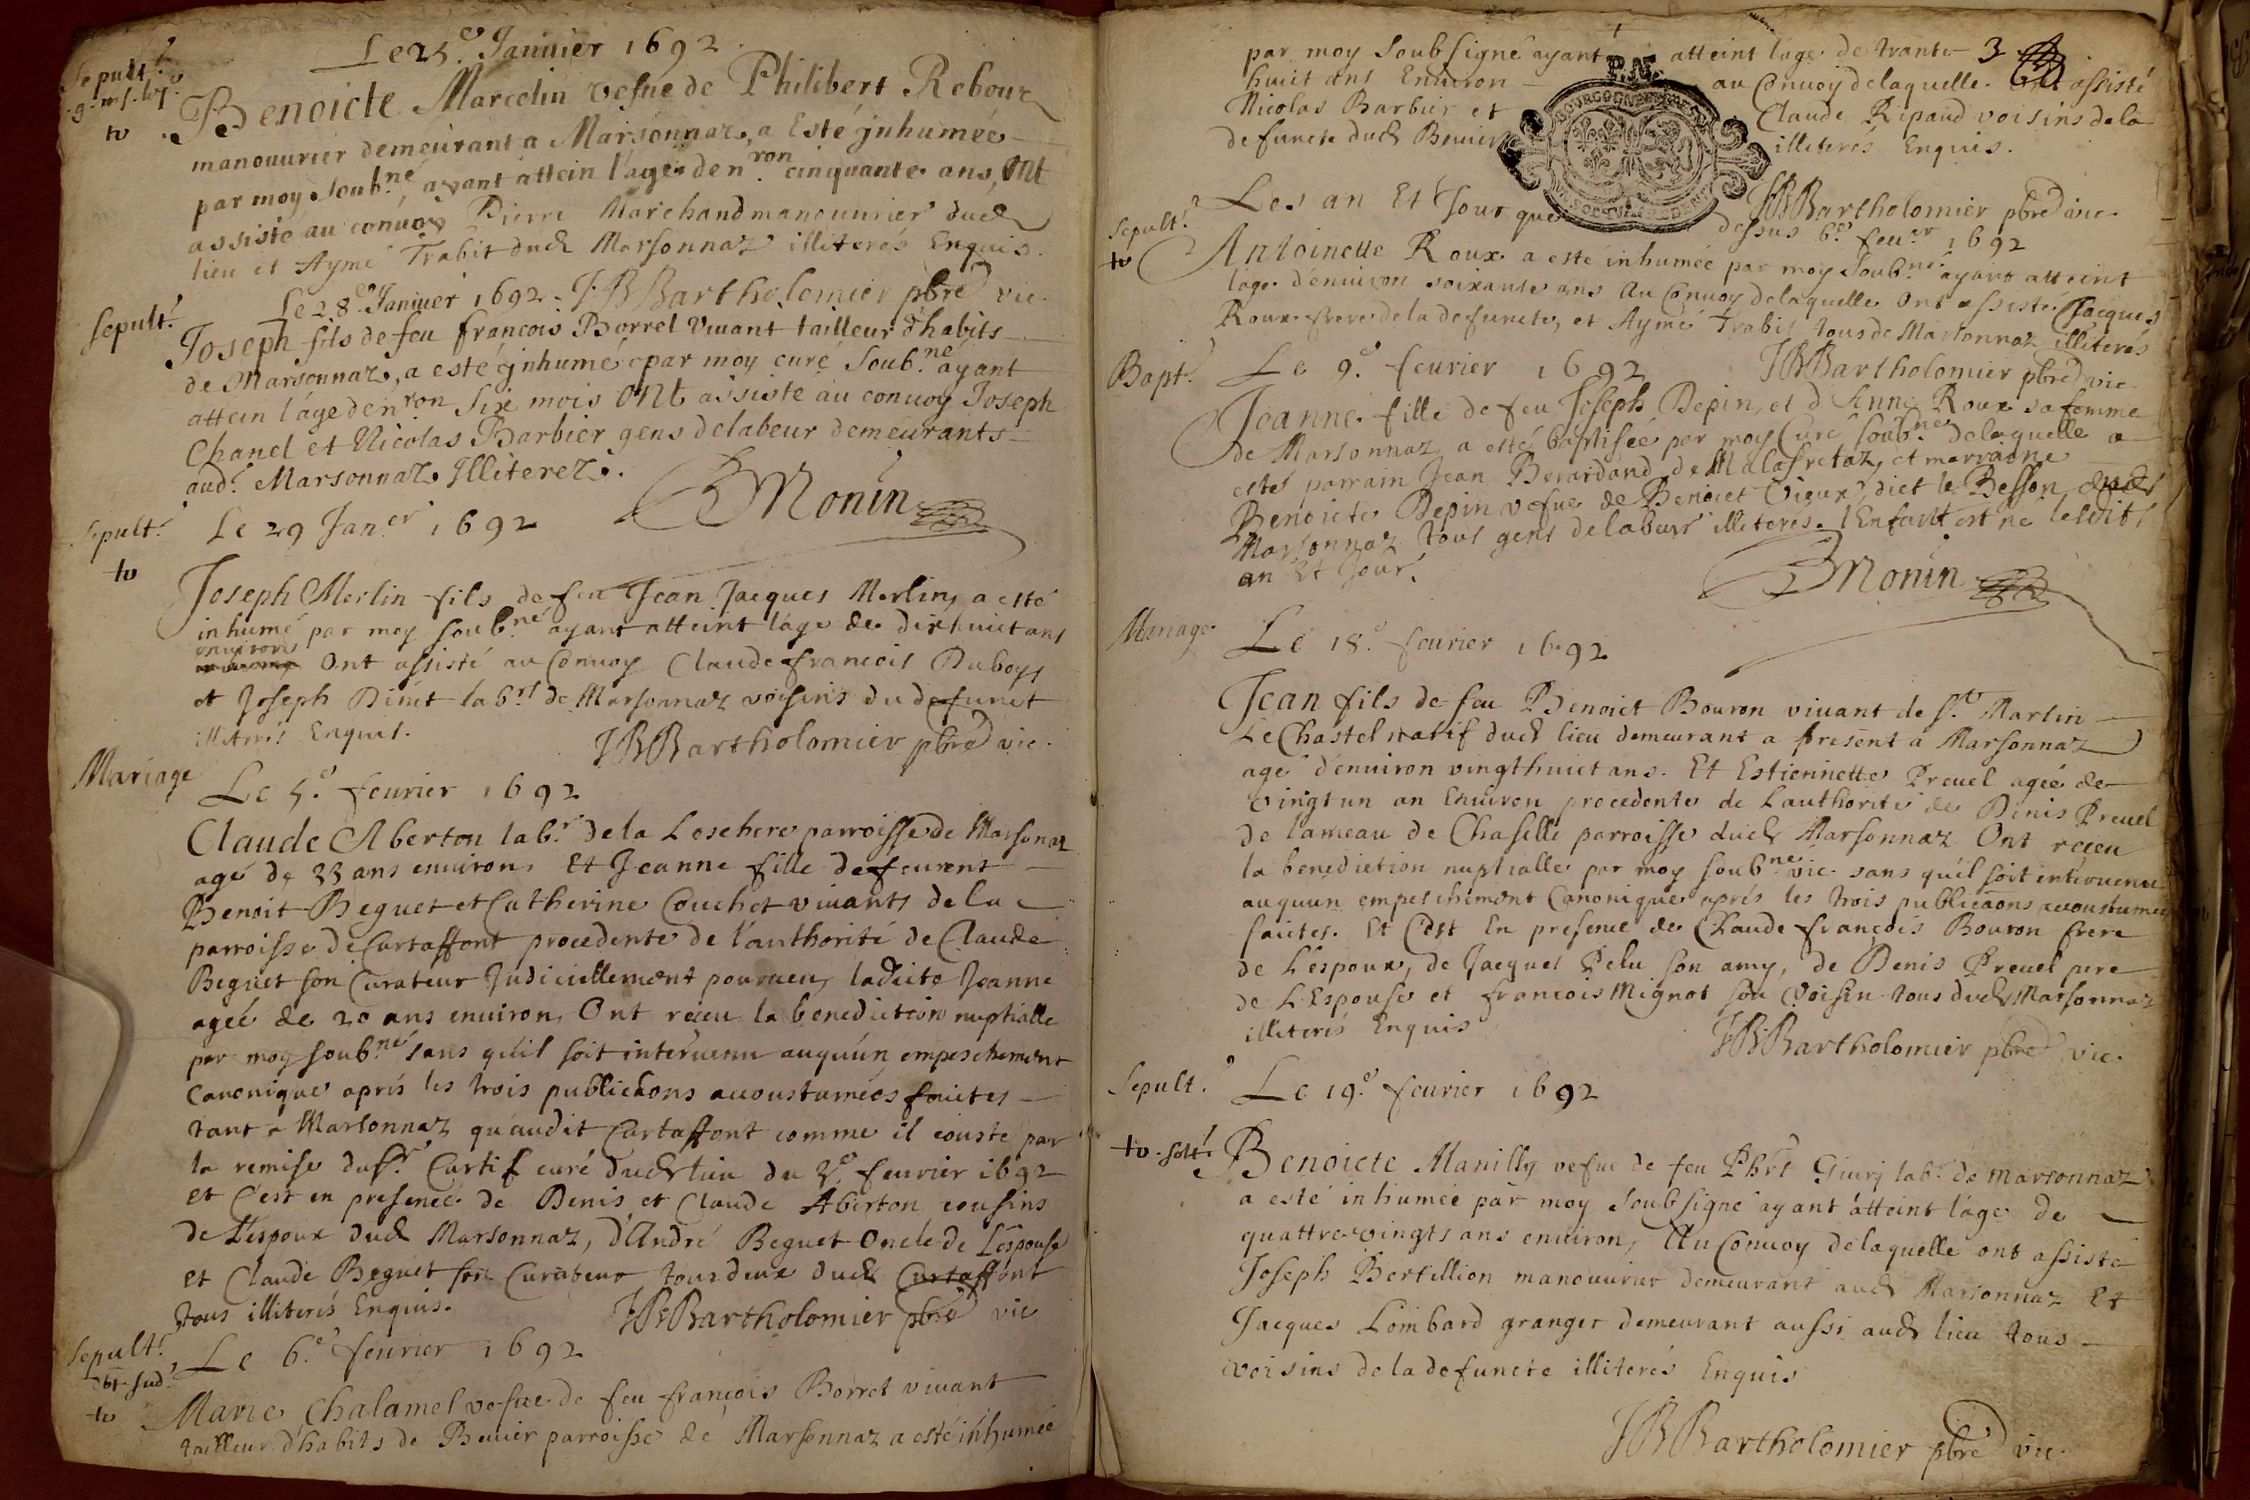 Sepult.
Le 25.e Januier 1692
to
Benoicte Marcelin vefue de Philibert Rebour
manouurier demeurant a Marsonnaz, a Esté jnhumée
par moy soub.né ayant attein l'age den.ron cinquante ans, Ont
assiste au conuoy Pierre Marchand manouurier dud
lieu et Aymé Trabit dud Marsonnaz illiterés Enquis.
Le 28.e Januier 1692. JBBartholomier pbre vic.
Sepult.
Joseph fils de feu francois Borrel Viuant tailleur d'habits
de Marsonnaz, a esté jnhumé par moy curé soub.né ayant
attein l'age den.ron Six mois Ont assisté au conuoy Joseph
Chanel et Nicolas Barbier gens de labeur demeurants
aud. Marsonnaz. Illiterez.
Monin
Sepult.
Le 29 Jan.er 1692
to
Joseph Merlin fils de feu Jean Jacques Merlin, a esté
inhumé par moy soub.né ayant atteint l'age de dixhuict ans
enuirons
Ont assisté au Conuoy Claude francois Duboys
et Joseph Dinet lab.rs de Marsonnaz voisins du defunct
illiterés Enquis.
JBBartholomier pbre vic.
Mariage
Le 5.e feurier 1692
Claude Aberton lab.r de la Loschere parroisse de Marsonnaz
agé de 33 ans enuiron, Et Jeanne fille de feurent
Benoit Beguet et Catherine Couchet viuants de la
parroisse de Curtaffont procedente de l'authorité de Claude
Beguet son Curateur Judiciellement pourueu, ladicte Jeanne
ageé de 20 ans enuiron, Ont receu la benediction nuptialle
par moy soub.né sans qu'il soit interuenu auquun empeschement
Canonique aprés les trois publicâons accoustumées faictes
tant a Marsonnaz qu'audit Curtaffont comme il couste par
la remise du sr. Curtif curé dud lieu du 3.e feurier 1692
et C'est en presence de Denis et Claude Aberton cousins
de L'espoux dud Marsonnaz, d'André Beguet Oncle de L'espouse
et Claude Beguet son Curateur tous deux dud Curtaffont
tous illiterés Enquis.
JBBartholomier pbre vic
Sepult.
Le 6.e feurier 1692
to
Marie Chalamel vefue de feu françois Borrel viuant
tailleur d'habits de Beuier parroisse de Marsonnaz a esté inhumée
par moy soubsigné ayant atteint l'age de trante 3
huict ans Enuiron au Conuoy de laquelle Ont assisté
Nicolas Barbier et Claude Ripaud voisins de la
defuncte dud Beuier illiterés Enquis.
P.N.
JBBartholomier pbre vic.
Sepult.
Les an Et Jour que dessus 6.e feu.er 1692
to
Antoinette Roux a esté inhumée par moy soub.né ayant atteint
l'age d'enuiron soixante ans Au Conuoy de laquelle Ont assisté Jacques
Roux frere de la defuncte, et Aymé Trabit tous de Marsonnaz illiterés
JBBartholomier pbre vic
Bapt.
Le 9.e feurier 1692
Jeanne fille de feu Joseph Pepin, et d'Anne Roux sa femme
de Marsonnaz a esté baptisée par moy Curé soub.né de laquelle a
esté parrain Jean Berardand de Malafretaz, et marraine
Benoicte Pepin vefue de Benoict Vieux dict le Besson dud
Marsonnaz tous gens de labeur illiterés. l'Enfant est né lesdits
an Et Jour.
Monin
Mariage
Le 18.e feurier 1692
Jean fils de feu Benoict Bouron viuant de St. Martin
Le Chastel natif dud lieu demeurant a present a Marsonnaz
agé d'enuiron vingthuict ans. Et Estiennette Preuel ageé de
vingtun an Enuiron procedente de L'authorité de Denis Preuel
de lameau de Chaselle parroisse dud Marsonnaz Ont receu
la benediction nuptialle par moy soub.né vic. sans qu'il soit interuenu
auquun empeschement Canonique aprés les trois publicâons accoustumées
faictes. Et C'est En presence de Claude françois Bouron frere
de L'espoux, de Jacques Pelu son amy, de Denis Preuel pere
de L'Espouse et francois Mignot son Voisin tous dud Marsonnaz
illiterés Enquis
JBBartholomier pbre vic.
Sepult.
Le 19.e feurier 1692
to
Benoicte Manilly vefue de feu Phrt lab.r de Marsonnaz
a esté inhumée par moy soubsigné ayant atteint l'age de
quattre vingts ans enuiron, Au Conuoy de laquelle ont assisté
Joseph Bertillion manouurier demeurant aud Marsonnaz Et
Jacques Lombard granger demeurant aussi aud lieu tous
voisins de la defuncte illiterés Enquis
JBBartholomier pbre vic.